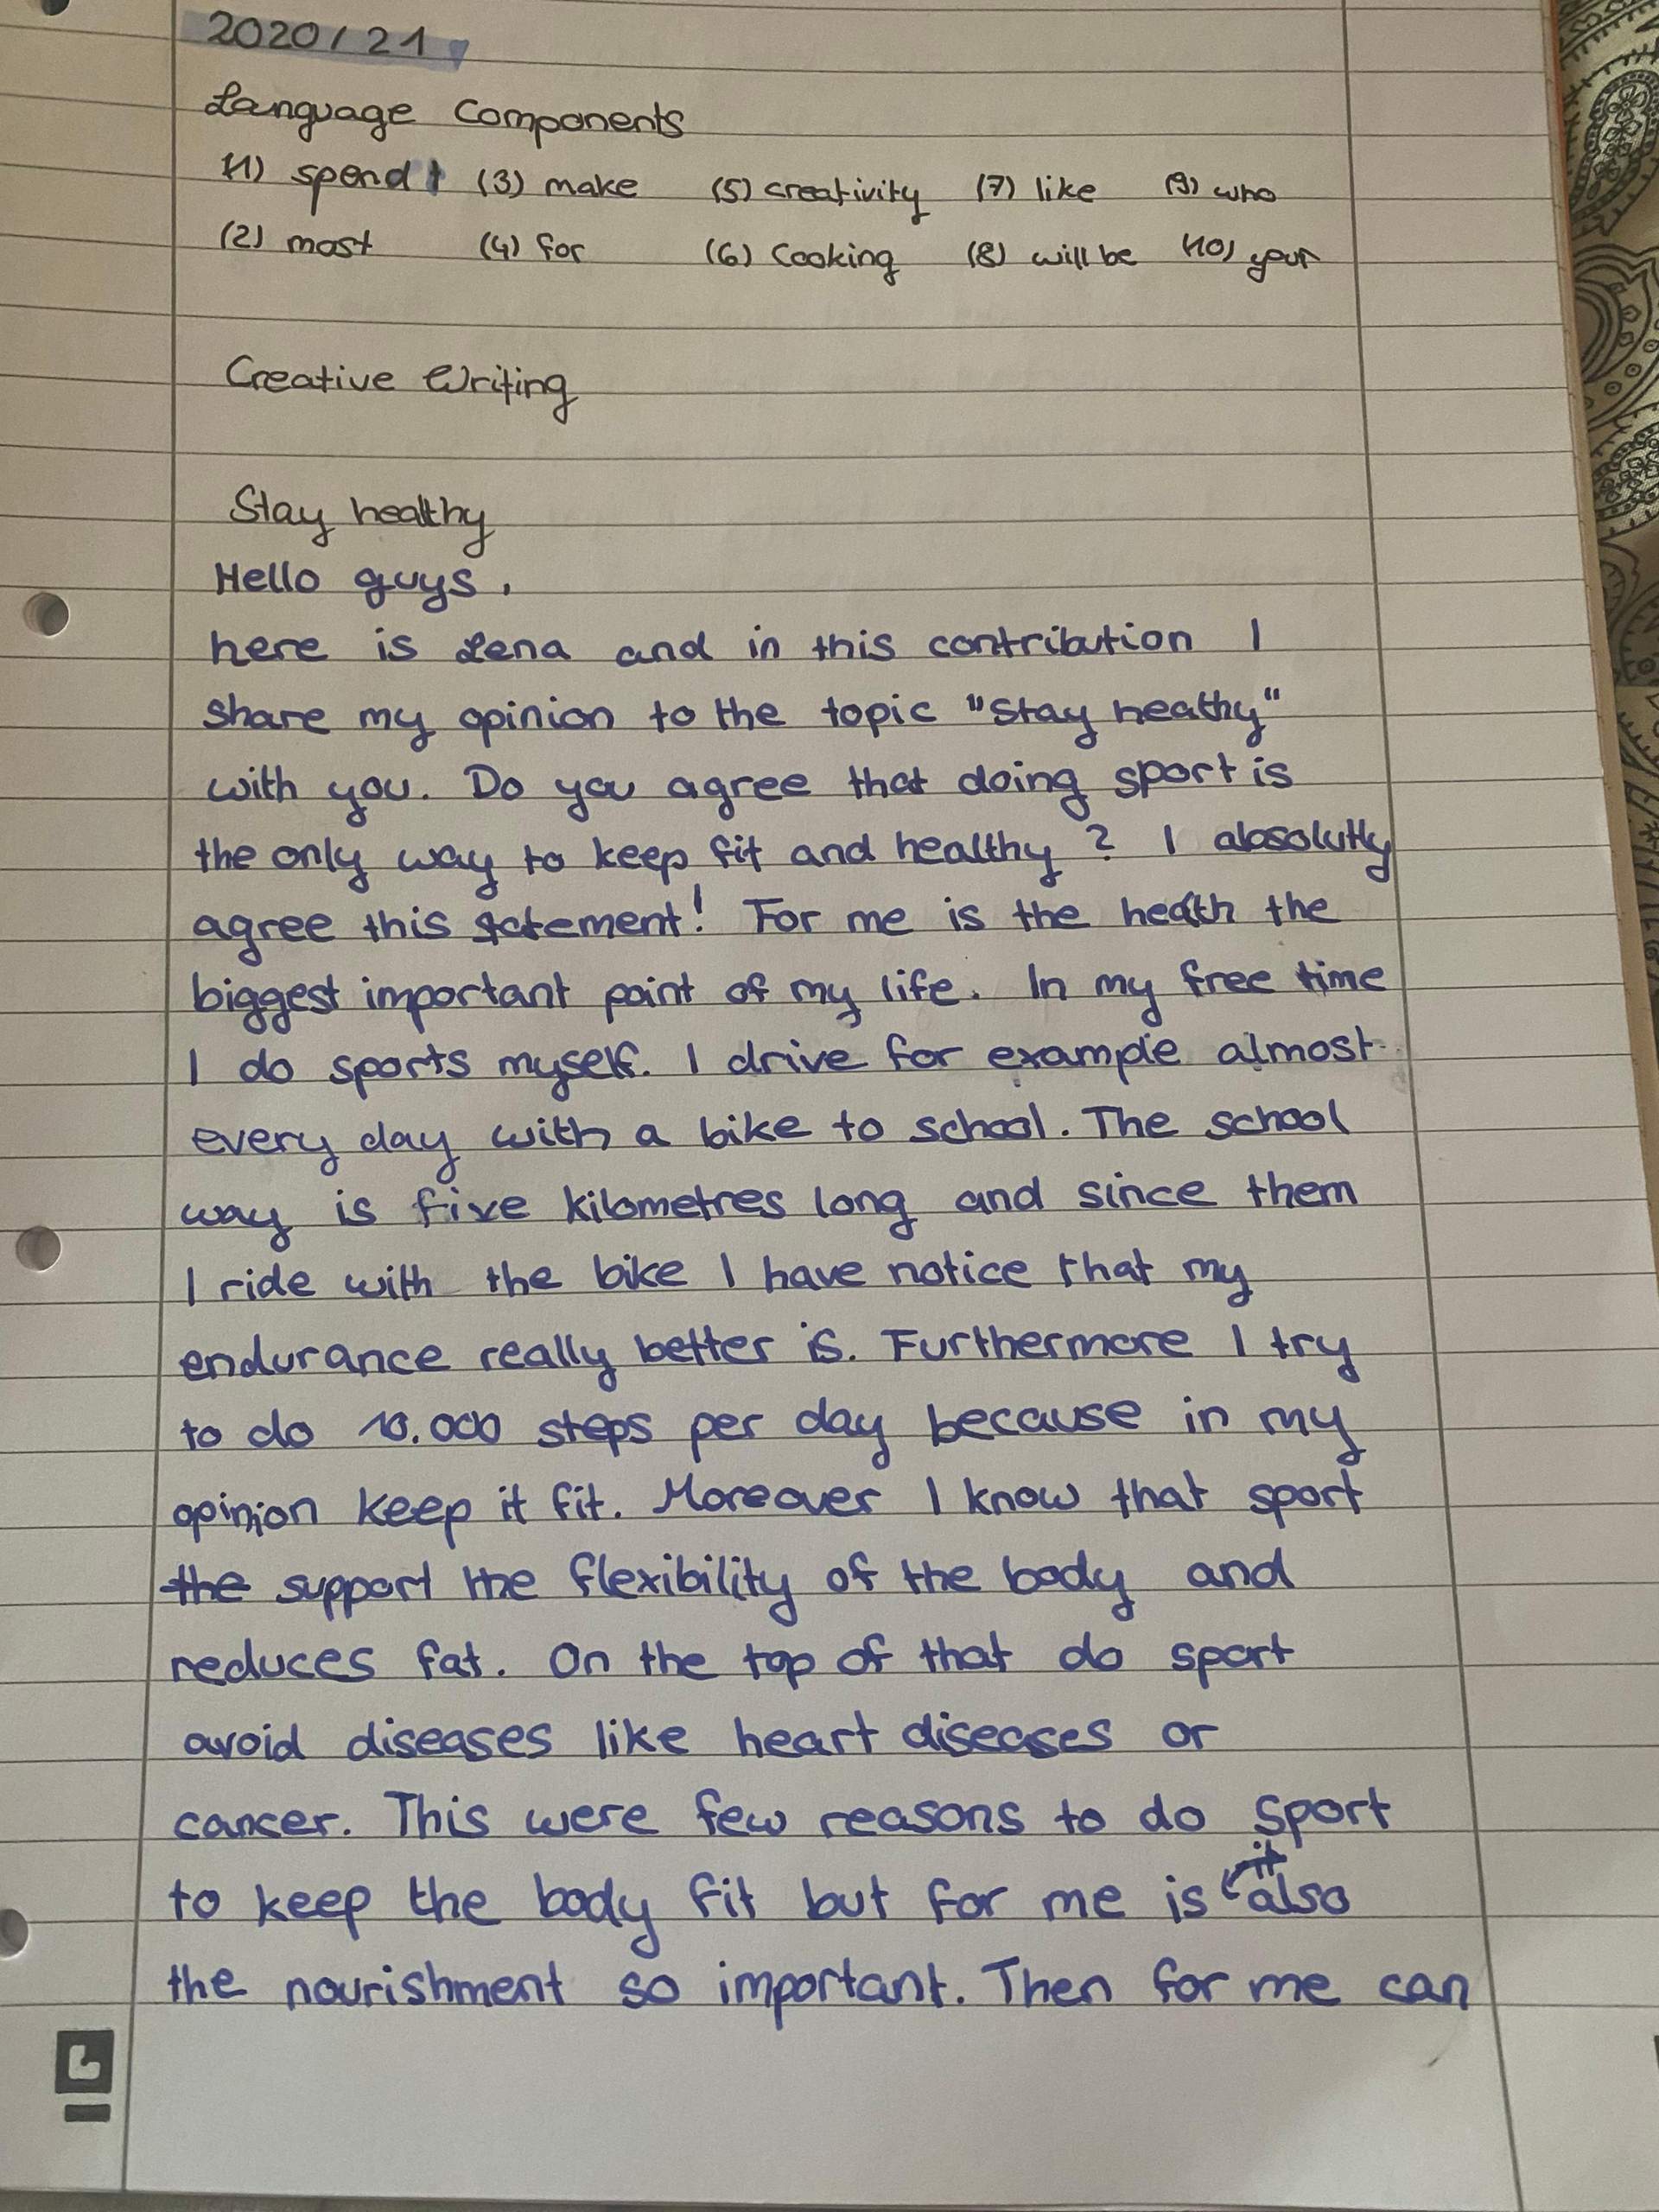 2020/21
Language Components
(1) spend (3) make (5) creativity (7) like (9) who
(2) most (4) for (6) Cooking (8) will be (10) your
Creative Writing
Stay healthy
Hello guys,
here is Lena and in this contribution I
share my opinion to the topic "Stay heathy"
with you. Do you agree that doing sport is
the only way to keep fit and healthy? I absolutly
agree this statement! For me is the heath the
biggest important point of my life. In my free time
I do sports myself. I drive for example almost
every day with a bike to school. The school
way is five kilometres long and since them
I ride with the bike I have notice that my
endurance really better is. Furthermore I try
to do 10.000 steps per day because in my
opinion keep it fit. Moreover I know that sport
the support the flexibility of the body and
reduces fat. On the top of that do sport
avoid diseases like heart diseases or
cancer. This were few reasons to do sport
to keep the body fit but for me is it also
the nourishment so important. Then for me can